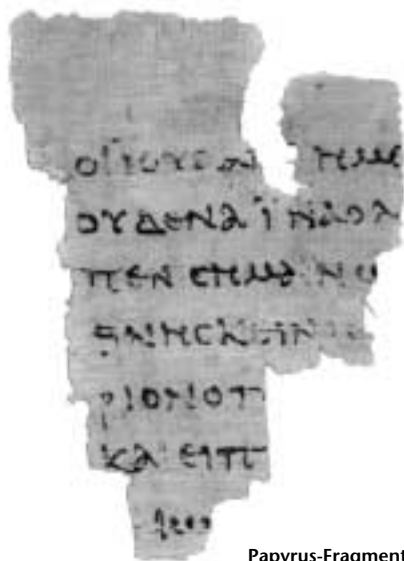 ΟΙ ΙΟΥΔΑΙ ΗΜΕ
ΟΥΔΕΝΑ ΪΝΑ Ο Λ
ΠΕΝ CΗΜΑΙΝΩ
ΘΝΗCΚΕΙΝ ΙC
ΡΙΟΝ Ο Π
ΚΑΙ ΕΙΠ
Papyrus-Fragment